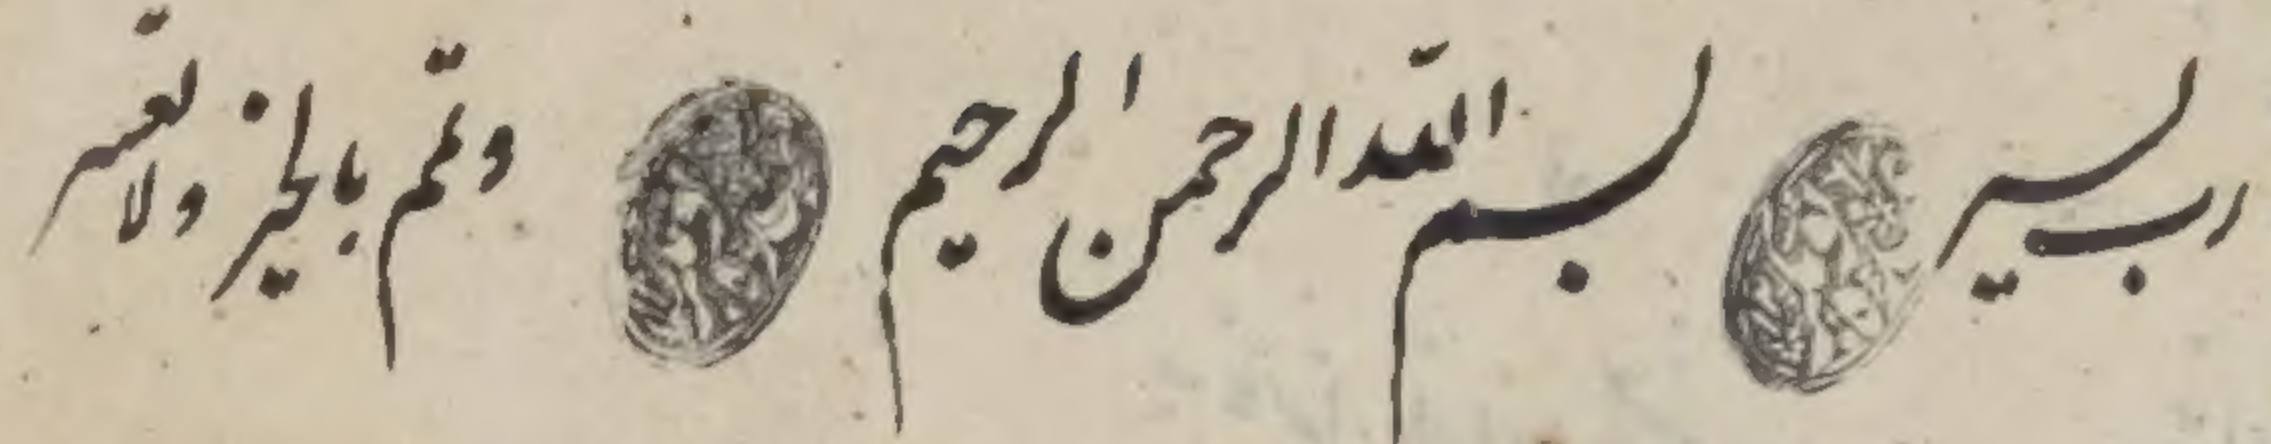 رب يسر بسم الله الرحمن الرحيم وتمم بالخير ولا تعسر